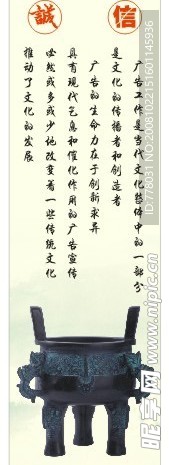 誠信
广告工作是当代文化整体中的一部分
是文化的传播者和创造者
广告的生命力在于创新求异
具有现代气息和催化作用的广告宣传
必然或多或少地改变着一些传统文化
推动了文化的发展
ID:778031 NO:20081022151601145936
昵享网 www.nipic.cn